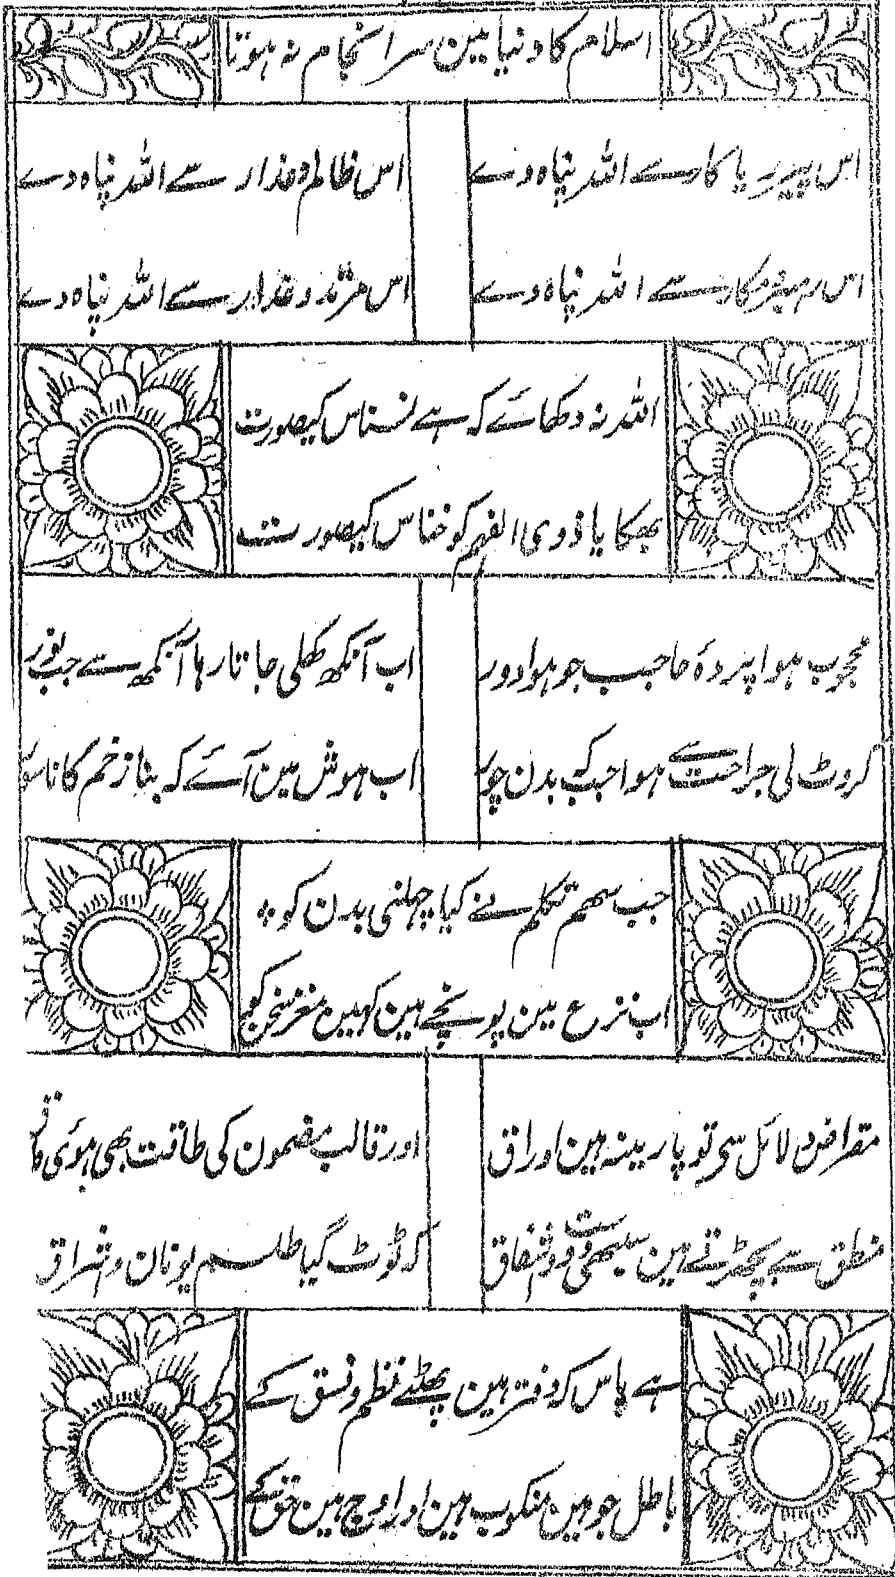 اسلام کا دنیا مین سرانجام نہ ہوتا
اس پیر ریا کار سے اللہ پناہ دے
اس ظالم وغدار سے اللہ پناہ دے
اس رہبر مکار سے اللہ پناہ دے
اس مرتد وغدار سے اللہ پناہ دے
اللہ نہ دکھائے کہ ہے نسناس کیصورت
بھکایا ذوی الفہم کو خناس کیصورت
محجوب ہوا پردۂ حاجب جو ہوا دور
اب آنکھ کھلی جاتا رہا آنکھ سے جب نور
کروٹ لی جراحت سے ہوا جب کہ بدن چور
اب ہوش مین آئے کہ بنا زخم کا ناسور
جب سھم تکلم نے کیا چھلنی بدن کو
اب نزع مین پونچے ہین کہین مغز سخن کو
مقراض دلائل سی تو پارینہ ہین اوراق
اور قالب مضمون کی طاقت بھی ہوئی
منطق سے بچھڑتے ہین سبھی وفاق
کہ ٹوٹ گیا طلسم یونان و اشراق
ہے پاس کہ دفتر ہین پھٹے نظم و نسق کے
باطل جو ہین منکوب ہین اور اوج ہین حق کے